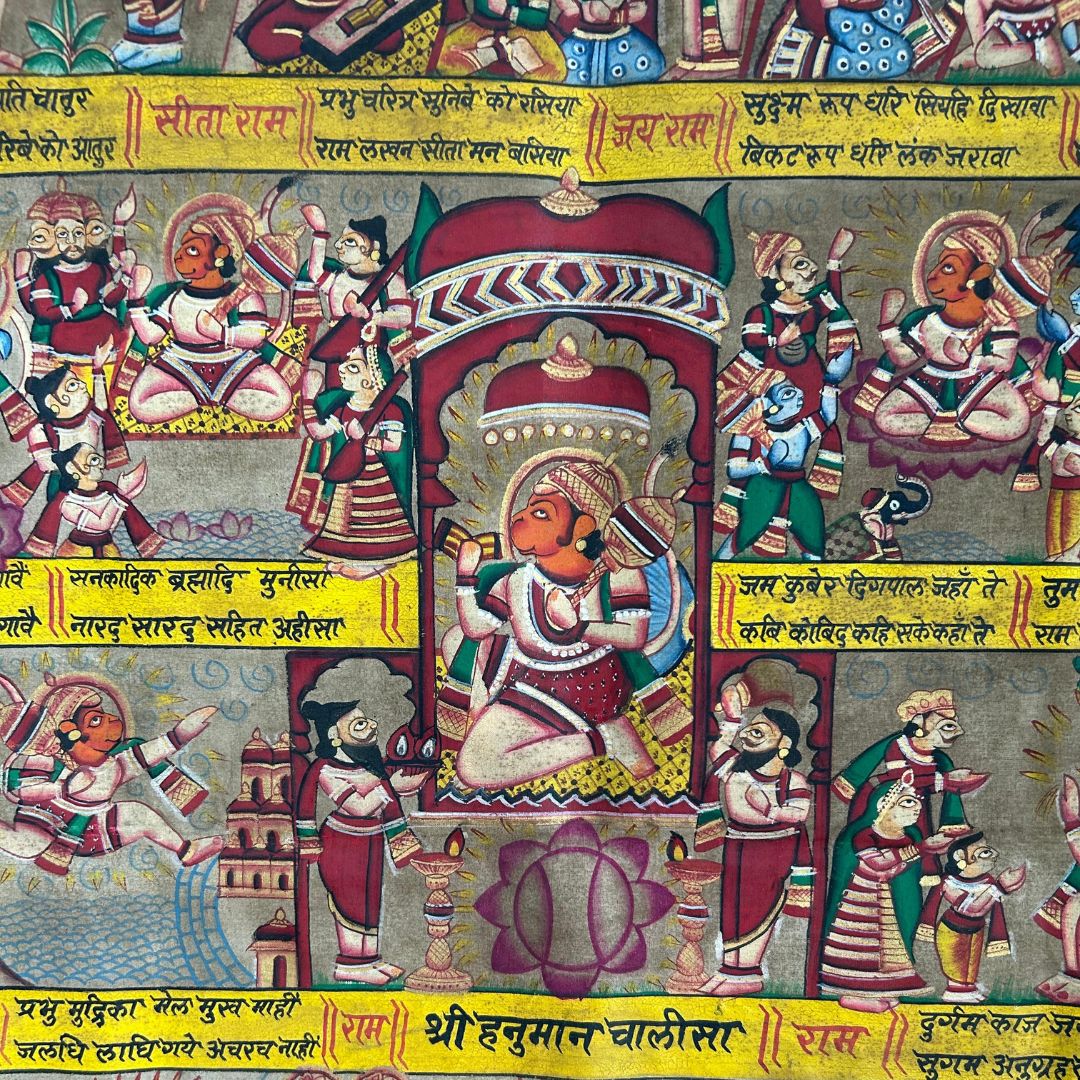 चातुर
रिबे को आतुर
॥ सीता राम ॥
प्रभु चरित्र सुनिबे को रसिया
राम लखन सीता मन बसिया
॥ जय राम ॥
सुक्ष्म रूप धरि सियहि दिखावा
बिकट रूप धरि लंक जरावा ॥
ावैं
गावै
॥ सनकादिक ब्रह्मादि मुनीसा
नारद सारद सहित अहीसा ॥
॥ जम कुबेर दिगपाल जहाँ ते
कबि कोबिद कहि सके कहाँ ते ॥
तुम
राम
प्रभु मुद्रिका मेल मुख माही
जलधि लाघि गये अचरच नाही
॥ राम ॥
श्री हनुमान चालीसा
॥ राम ॥
दुर्गम काज ज
सुगम अनुग्रह